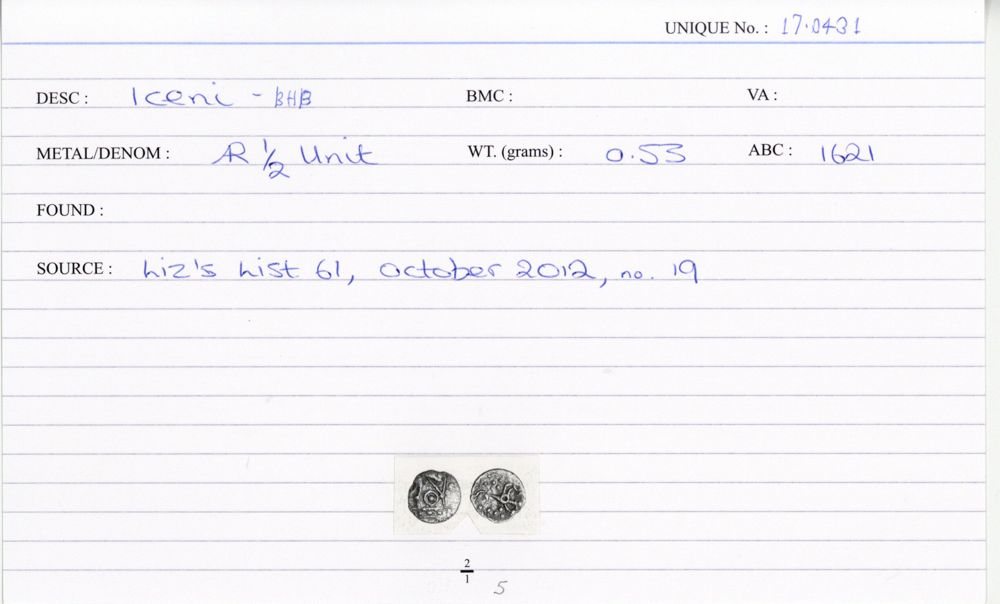 UNIQUE No. : 17.0431
DESC : Iceni - BHB BMC : VA :
METAL/DENOM : AR 1/2 Unit WT. (grams) : 0.53 ABC : 1621
FOUND :
SOURCE : Liz's List 61, October 2012, no. 19
2
1
5